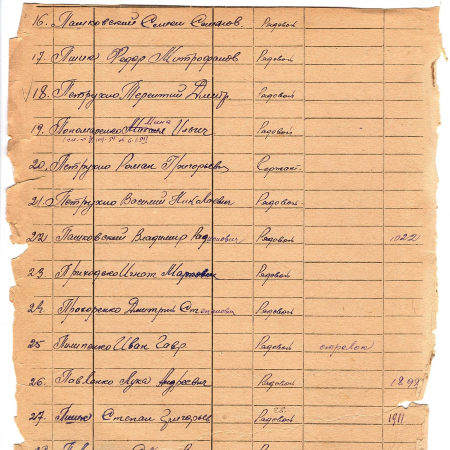 16. Пашковский Семен Семенов. Рядовой
17. Пшик Федор Митрофанов Рядовой
18. Петрухно Терентий Дмитр. Рядовой
19. Пономаренко Мина Ильич Рядовой
20. Петрухно Роман Григорьевич Сержант.
21. Петрухно Василий Николаевич Рядовой
22. Пашковский Владимир Родионович Рядовой 1022
23. Приходько Игнат Маркович Рядовой
24. Прохоренко Дмитрий Степанович Рядовой
25 Пилипенко Иван Гавр Рядовой стрелок
26. Павленко Лука Андреевич Рядовой 1898
27. Пшик Степан Григорьев Рядовой 1911